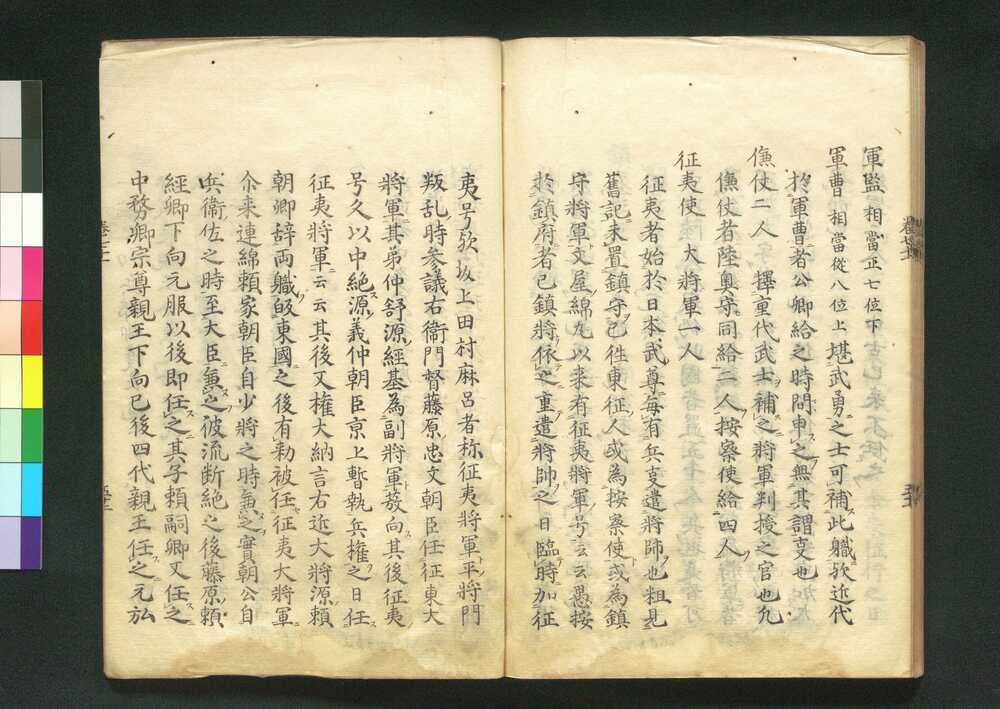 軍監 相當正七位下
軍曹 相當從八位上 堪武勇之士可補此軄欤近代
於軍曹者公卿給之時問申之無其謂𠮷也
傔仗二人 擇重代武士補之將軍判授之官也凢
傔仗者陸奥守同給二人按察使給四人
征夷使 大將軍一人
征夷者始於日本武尊每有兵㕝遣將帥也粗見
舊記未置鎮守已徃東征人或為按察使或為鎮
守將軍文屋綿丸以来有征夷將軍号云云愚按
於鎮府者已鎮將依之重遣將帥之日臨時加征
夷号欤坂上田村麻呂者称征夷將軍平將門
叛乱時参議右衛門督藤原忠文朝臣任征東大
將軍其弟仲舒源經基為副將軍蕟向其後征夷
号久以中絶源義仲朝臣京上暫執兵權之日任
征夷將軍云云其後又権大納言右近大將源頼
朝卿辞両軄皈東國之後有勅被任征夷大將軍
尒来連綿頼家朝臣自少將之時兼之實朝公自
兵衛佐之時至大臣兼之彼流断絶之後藤原頼
經卿下向元服以後即任之其子頼嗣卿又任之
中務卿宗尊親王下向已後四代親王任之元弘